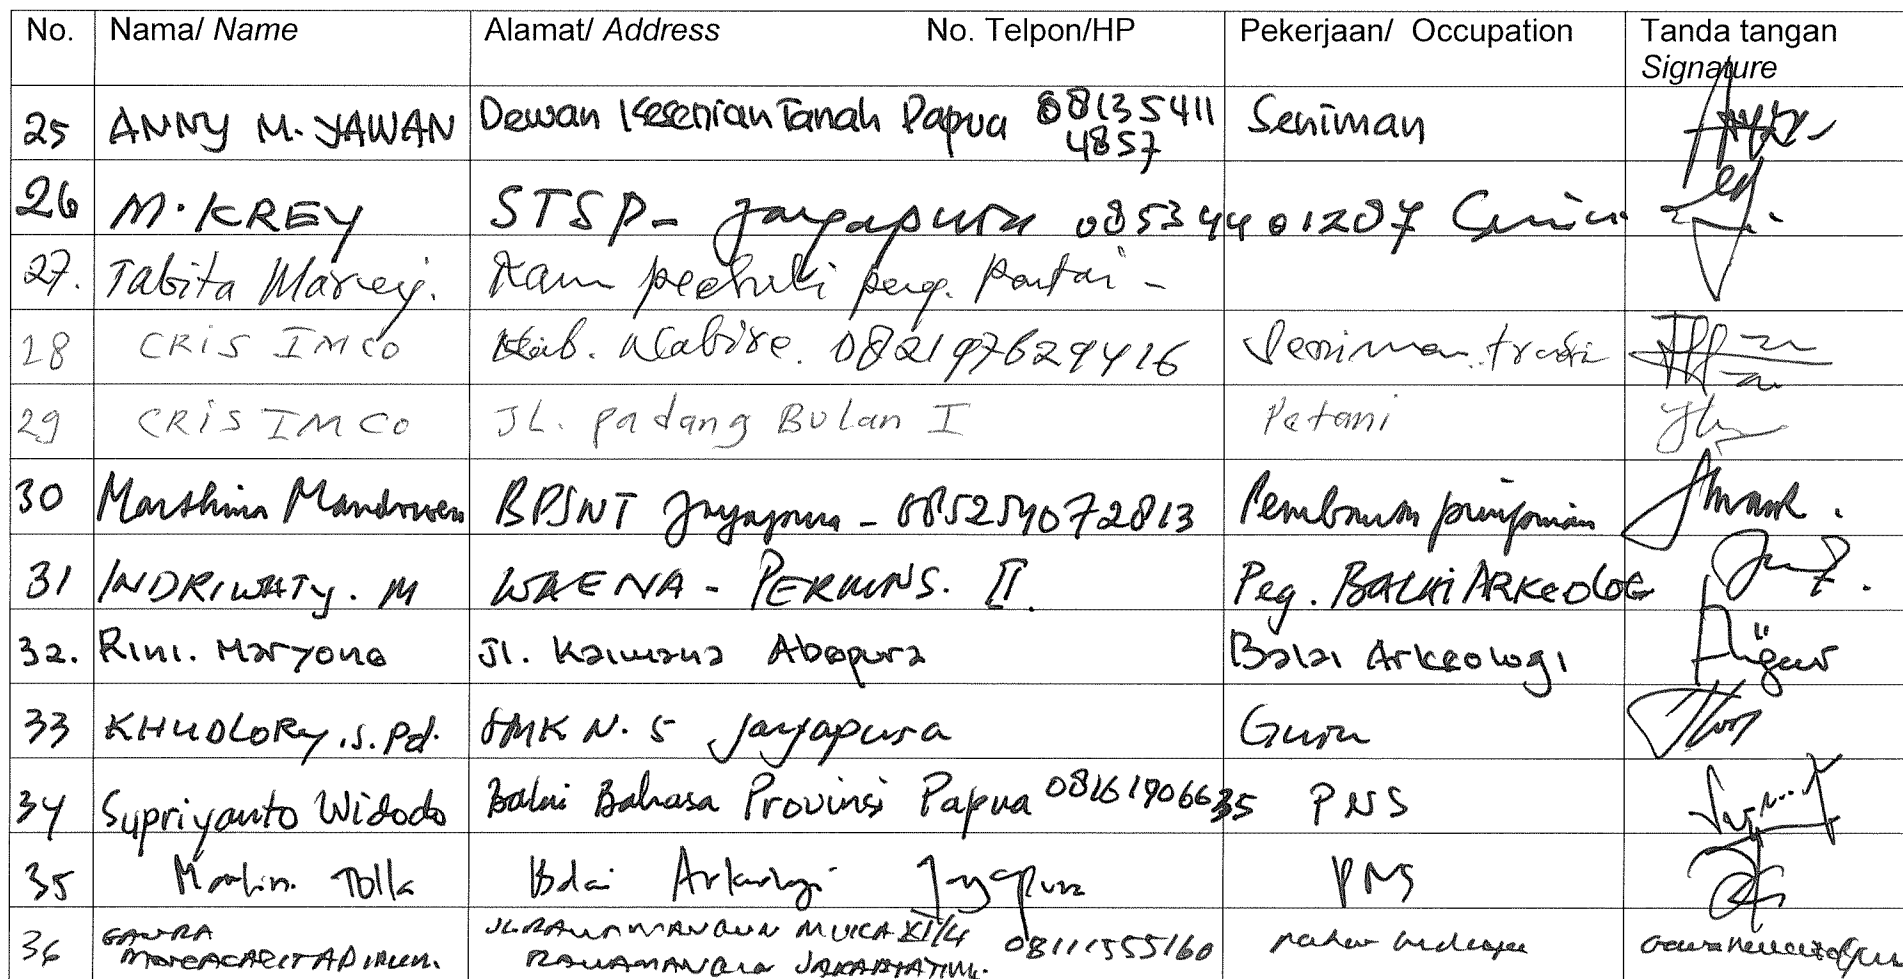 No. Nama/ Name Alamat/ Address No. Telpon/HP Pekerjaan/ Occupation Tanda tangan
Signature
25 ANNY M. YAWAN Dewan Kesenian Tanah Papua 08135411 Seniman
4857
26 M. KREY STSP- Jayapura 08534401287
27. Tabita
28 CRIS IMCO Kab. Nabire. 082197629416 Seniman tradisi
29 CRIS IMCO JL. Padang Bulan I Petani
30 BPSNT Jayapura - 085254072813
31 INDRIWATY. M WAENA - PERUMNS. II. Peg. BALAI ARKEOLOG
32. Rini. Maryone Jl. Kaimana Abepura Balai Arkeologi
33 KHUDLORY, S.Pd. SMK N. 5 Jayapura Guru
34 Supriyanto Widodo Balai Bahasa Provinsi Papua 08161906635 PNS
35 Marlin Tolla Balai Arkeologi Jayapura PNS
36 GAURA JL. RAWAMANGUN MUKA XI/4 08111555160
MANCACARITADIPURA. RAWAMANGUN JAKARTA TIM.